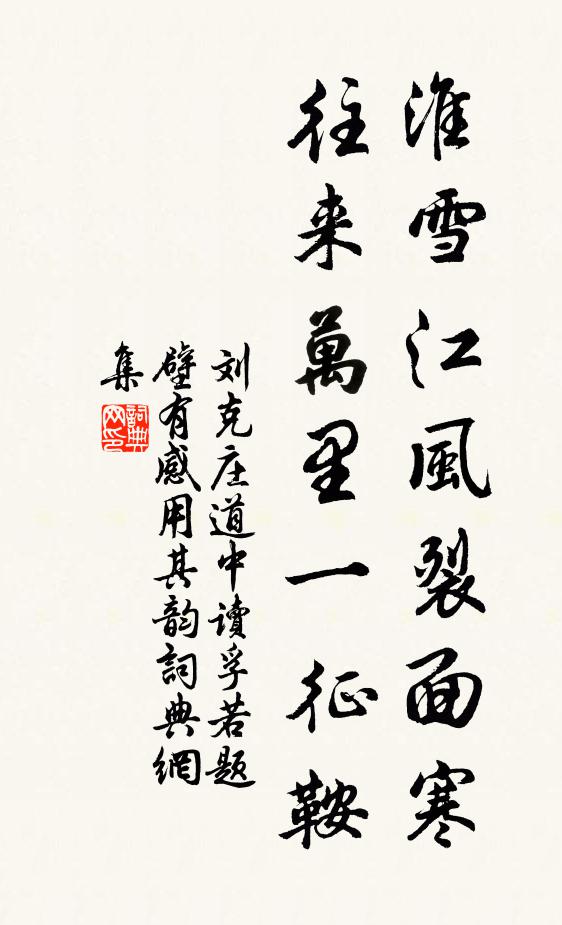 淮雪江風裂面寒
往来萬里一征鞍
刘克庄道中讀孚若题
壁有感用其韵詞典網
集
詞典
网印